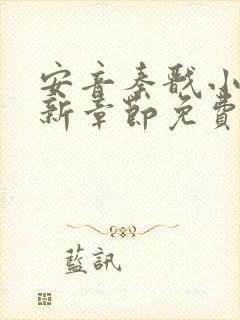 安音秦戬小
新章節免費
藍訊